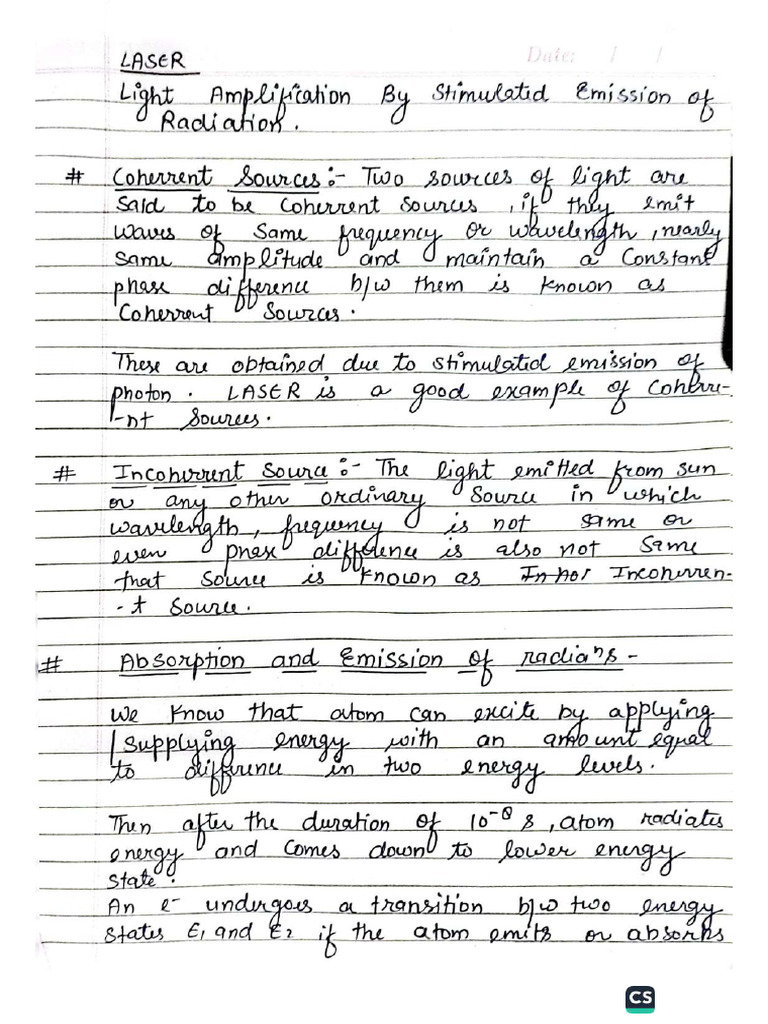 Date: / /
LASER
Light Amplification By Stimulated Emission of
Radiation.
# Coherrent Sources:- Two sources of light are
said to be coherrent sources, if they emit
waves of same frequency or wavelength, nearly
same amplitude and maintain a constant
phase difference b/w them is known as
Coherrent Sources.
These are obtained due to stimulated emission of
photon. LASER is a good example of Coherre-
-nt Sources.
# Incoherrent Source:- The light emitted from sun
or any other ordinary source in which
wavelength, frequency is not same or
even phase difference is also not same
that source is known as Incoherren-
-t Source.
# Absorption and Emission of radiaⁿs -
We know that atom can excite by applying
/supplying energy with an amount equal
to difference in two energy levels.
Then after the duration of 10⁻⁸ s, atom radiates
energy and comes down to lower energy
state.
An e⁻ undergoes a transition b/w two energy
states E₁ and E₂ if the atom emits or absorbs
CS